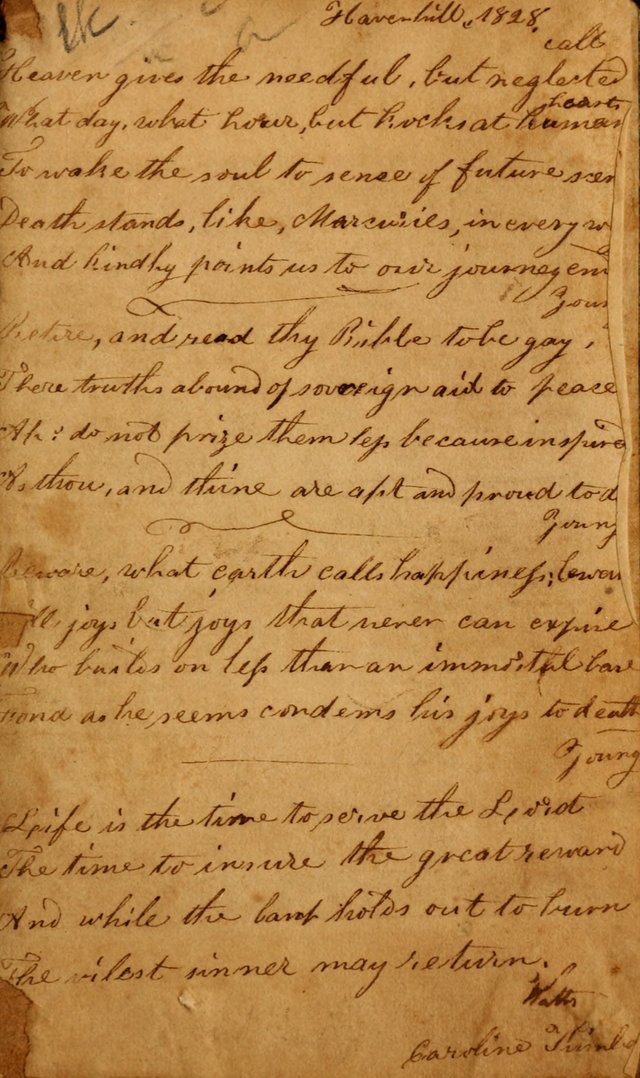 Haverhill, 1828.
call
Heaven gives the needful, but neglected
What day, what hour, but knocks at human
hearts
To wake the soul to sense of future scen
Death stands, like, Marcuries, in every w
And kindly points us to our journey en
Youn
Retire, and read thy Bible to be gay,
There truths abound of sovereign aid to peace
Ah: do not prize them less because inspired
As thou, and thine are apt and proud to d
Young
Beware, what earth calls happiness; bewar
All joys but joys that never can expire
Who builds on less than an immortal base
Fond as he seems condems his joys to death
Young
Life is the time to serve the Lord
The time to insure the great reward
And while the lamp holds out to burn
The vilest sinner may return.
Watts
Caroline Kimb